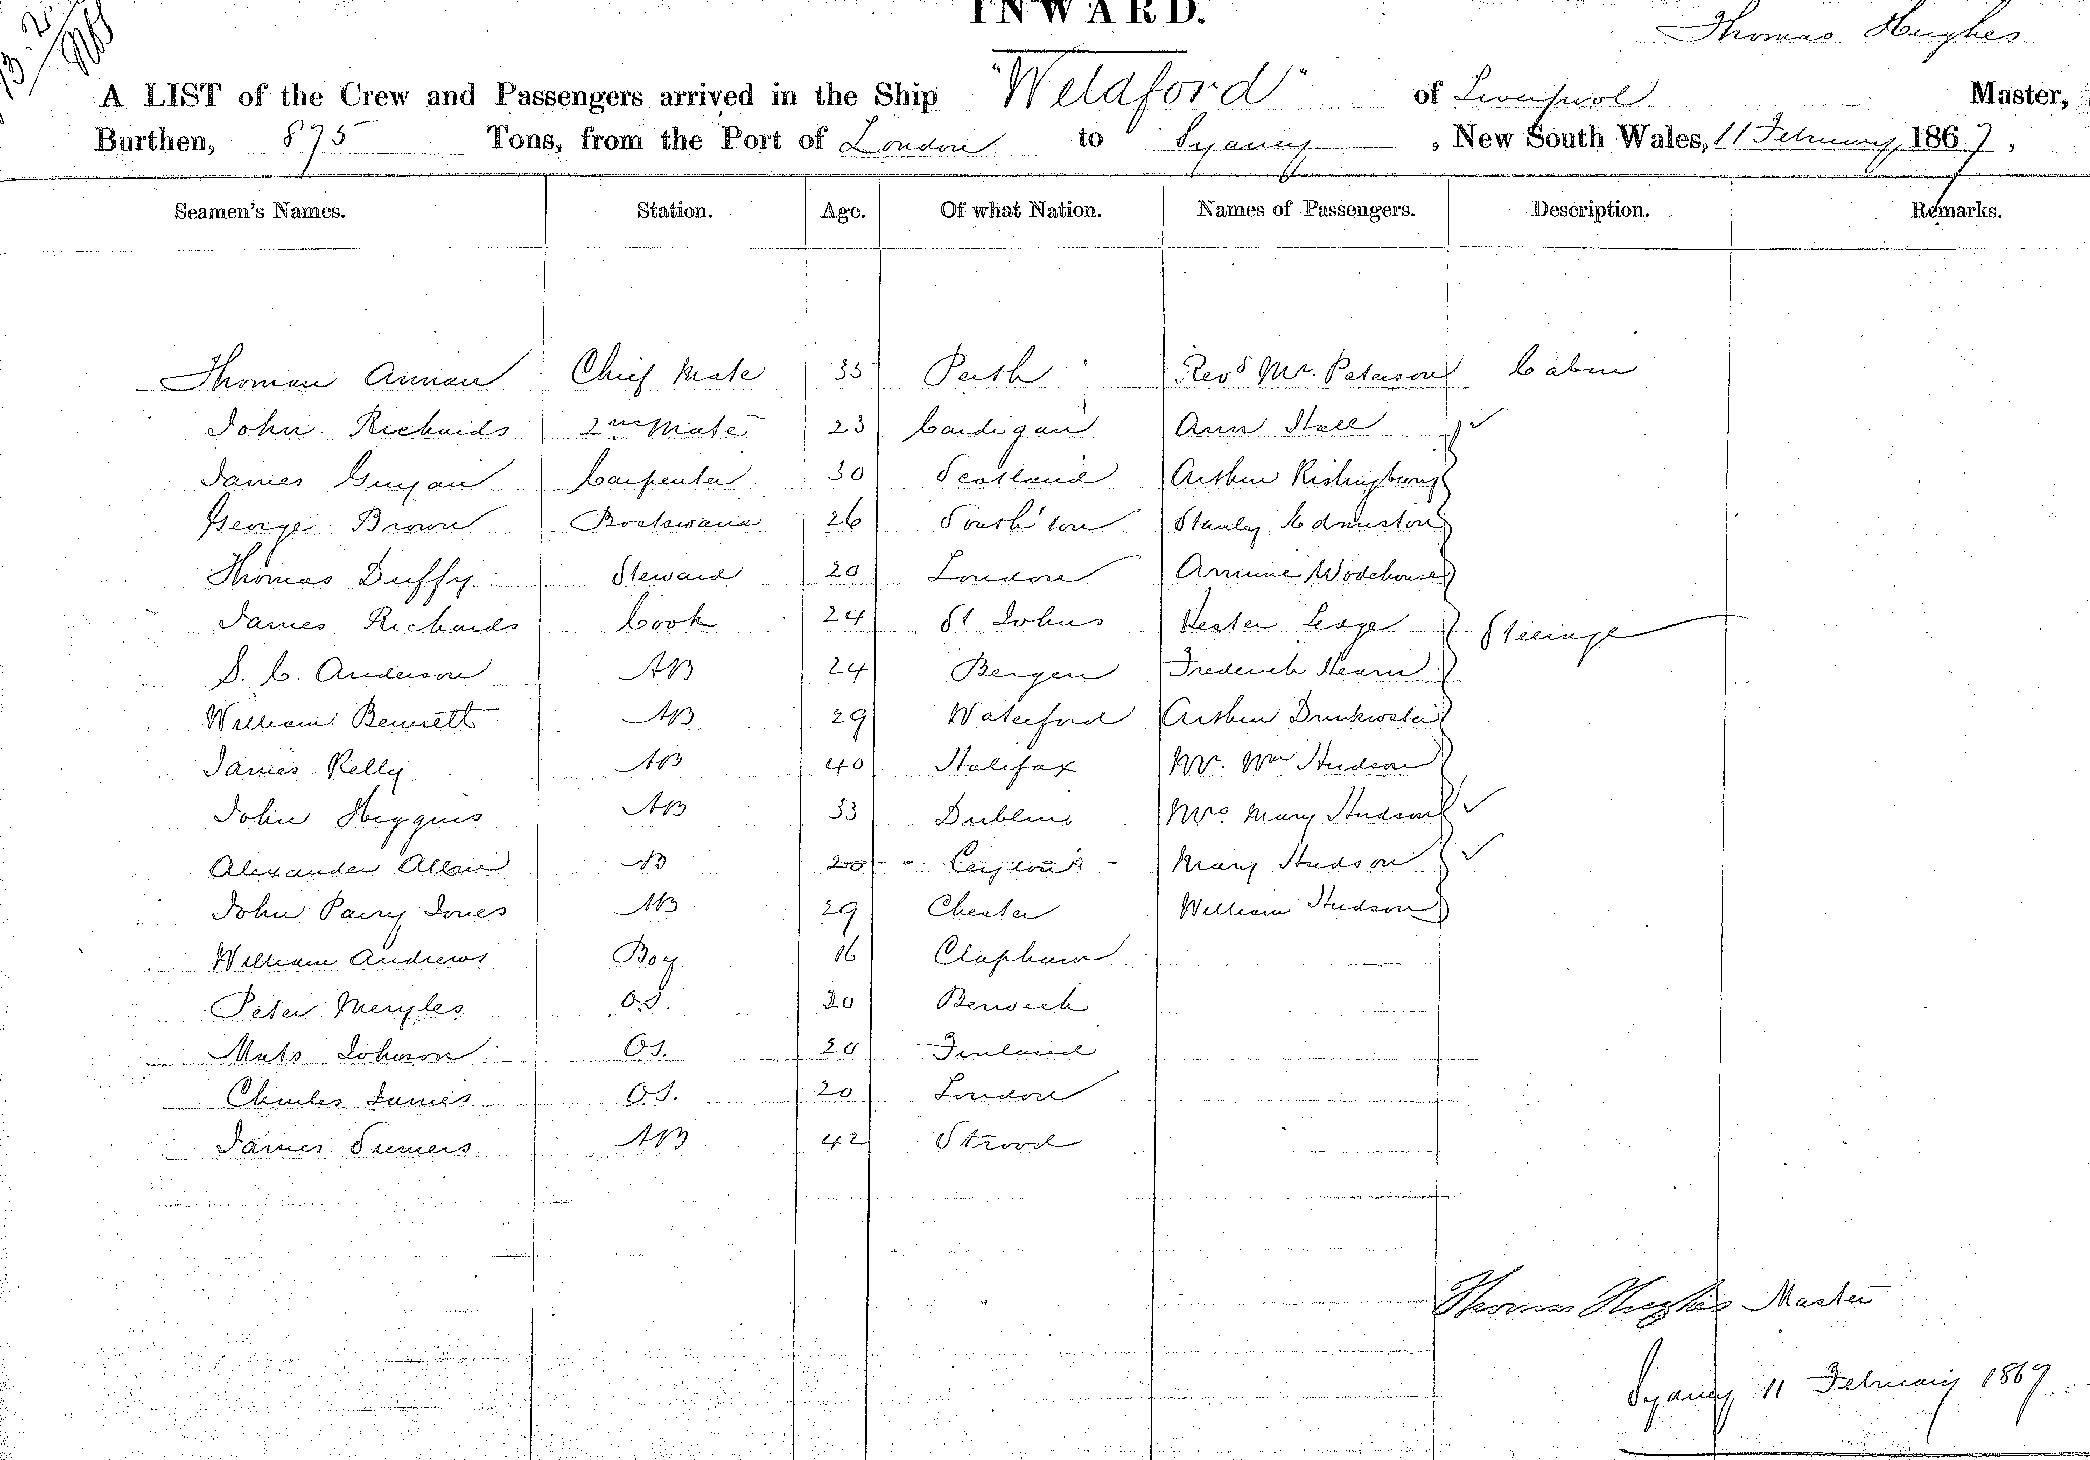 INWARD.
Thomas Hughes
A LIST of the Crew and Passengers arrived in the Ship "Weldford" of Liverpool Master,
Burthen, 875 Tons, from the Port of London to Sydney, New South Wales, 11 February 1867,
Seamen's Names. Station. Age. Of what Nation. Names of Passengers. Description. Remarks.
Thomas Annan Chief Mate 35 Perth Revd Mr. Paterson Cabin
John Richards 2nd Mate 23 Cardigan Ann Hall
James Guyan Carpenter 30 Scotland Arthur Rishingbury
George Brown Boatswain 26 South'ton Stanley Edmiston
Thomas Duffy Steward 20 London Wodehouse
James Richards Cook 24 St Johns Hester Steerage
S. C. Anderson AB 24 Bergen Frederick Hearn
William Bennett AB 29 Waterford Arthur Drinkwater
James Kelly AB 40 Halifax Mr. Wm Hudson
John Higgins AB 33 Dublin Mrs Mary Hudson
Alexander AB 20 Ceylon Mary Hudson
John Parry Jones AB 29 Chester William Hudson
William Andrews Boy 16 Clapham
Peter Meryles O.S. 20 Berwick
Mats Johnson OS. 20 Finland
Charles James O.S. 20 London
James Sumers AB 42 Strood
Thomas Hughes Master
Sydney 11 February 1867